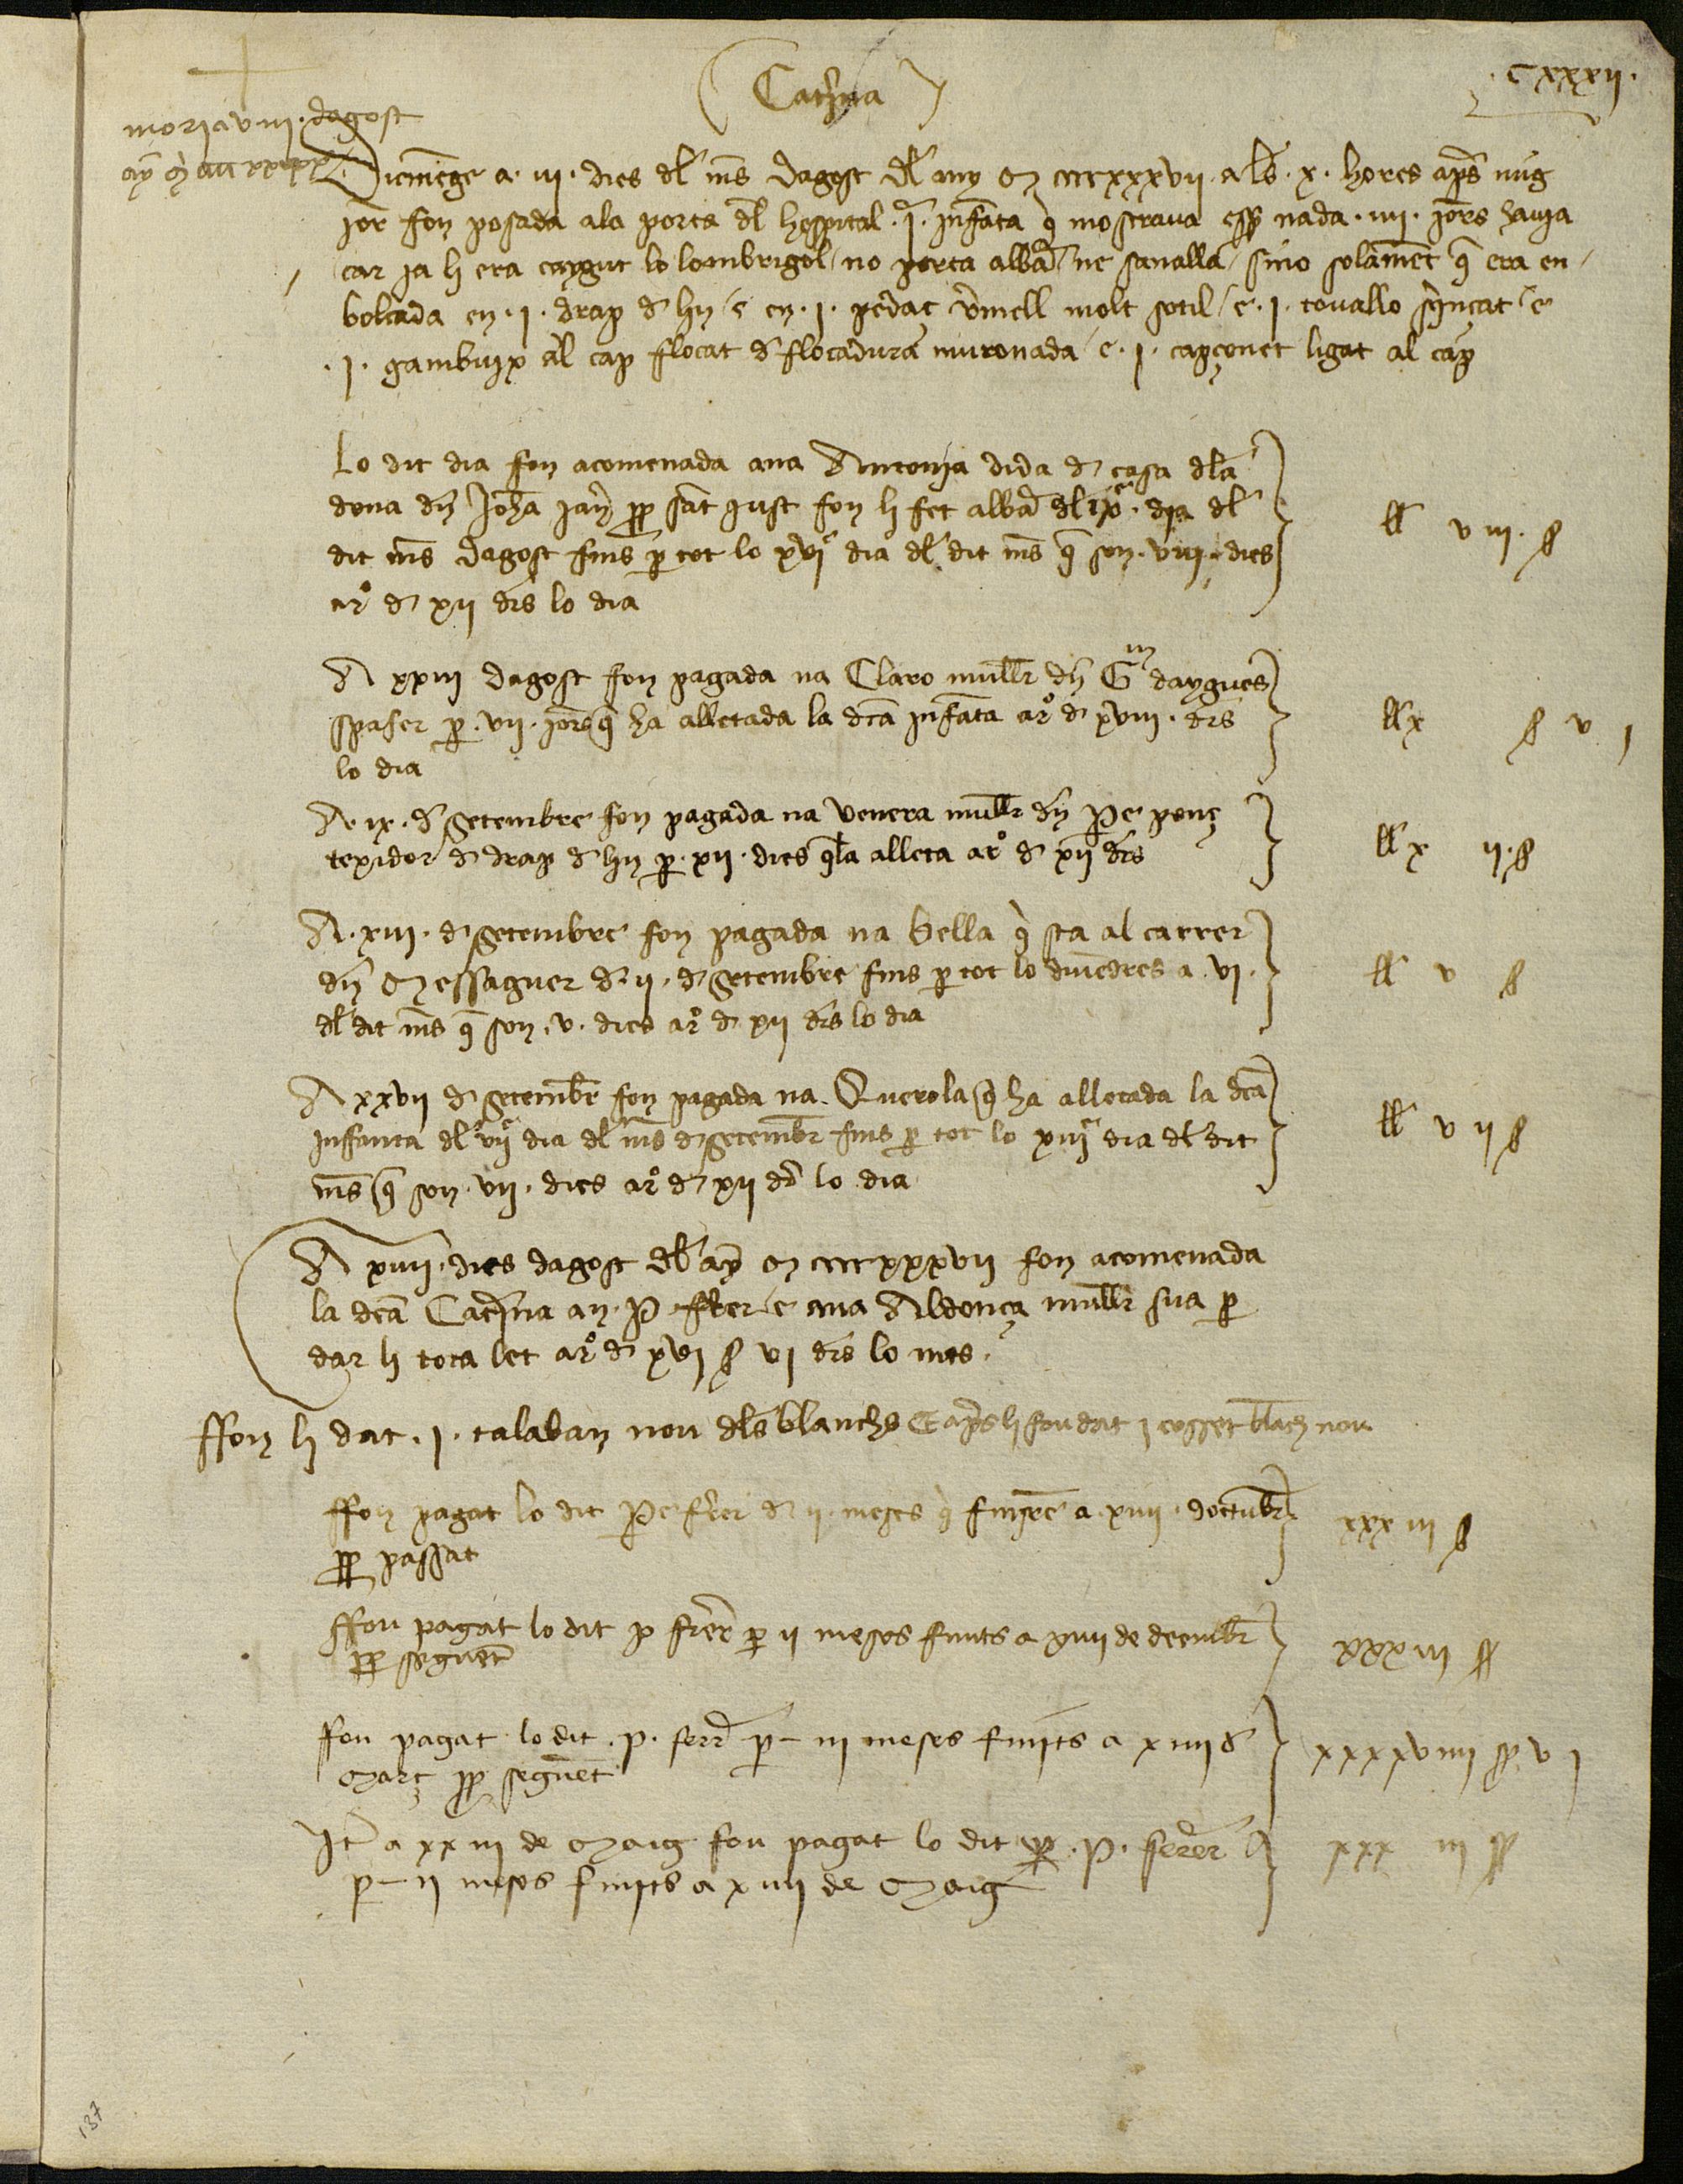 .Cxxxii.
Cathna
moria viii. dagost
Diemēge a. iii. dies dl ms dagost dl any M ccccxxxvii. a ls. x. hores aps mig
jor fon posada ala porta dl hospital. jᵃ. infāta q̄ mostraua esser nada. iiii. jors hauja
car ja li era caygut lo lombrigol / no porta albāra / ne sanalla / sino solamēt q̄ era en
bolcada en. j. drap d li / e en. j. pedaç v̄mell molt sotil / e. j. touallo / e
. j. gambuix al cap flocat d flocadura muronada / e. j. capçonet ligat al cap
Lo dit dia fon acomenada ana Antonja dida d casa dla
dona dn Johā pp sāt Just fon li fet albā dl ix. dia dl
dit ms dagost fins p tot lo xviᵉ dia dl dit ms q̄ son. viii. dies
arº d xii drs lo dia
ll viii. s
A xxiii dagost fon pagada na Claro mullr dn Gᵐ daygues
spaser p. vii. jors q̄ ha alletada la dcā infāta arº d xviii. drs
lo dia
ll x s vi
A. ix. d setembre fon pagada na venera mullr dn Pe ponç
texidor d drap d li p. xii. dies q̄la alleta arº d xii drs
ll x ii. s
A. xiii. d setembre fon pagada na bella q̄ sta al carrer
dn Messaguer d. ii. d setembre fins p tot lo diuēdres a. vi.
dl dit ms q̄ son. v. dies arº d xii drs lo dia
ll v s
A xxvii d setembr fon pagada na Querola q̄ ha alletada la dcā
infanta dl viiᵉ dia dl ms d setembr fins p tot lo xiiiᵉ dia dl dit
ms q̄ son. vii. dies arº d xii dr lo dia
ll v ii s
A xiiii. dies dagost dl āy M ccccxxxvii fon acomenada
la dcā Catřina an. P. fřer e ana Aldonça mullr sua p
dar li tota let arº d xvi s vi drs lo mes.
ffon li dat. j. talaban nou dls blanchs E aps li fon dat j cosset blāch nou
ffon pagat lo dit Pe frer d ii. meses q̄ finirē a. xiiii. doctubr
pp passat
xxx iii s
ffou pagat lo dit p frer p ii mesos finits a xiiii de deembr
pp seguēt
xxx iii ss
ffou pagat lo dit. p. ferr p iii meses finits a xiiii d
Març pp seguēt
xxxxviiii ss vi
Itē a xx iii de Maig fou pagat lo dit. P. ferer
p ii mesos finits a xiiii de Maig
xxx iii ss
137